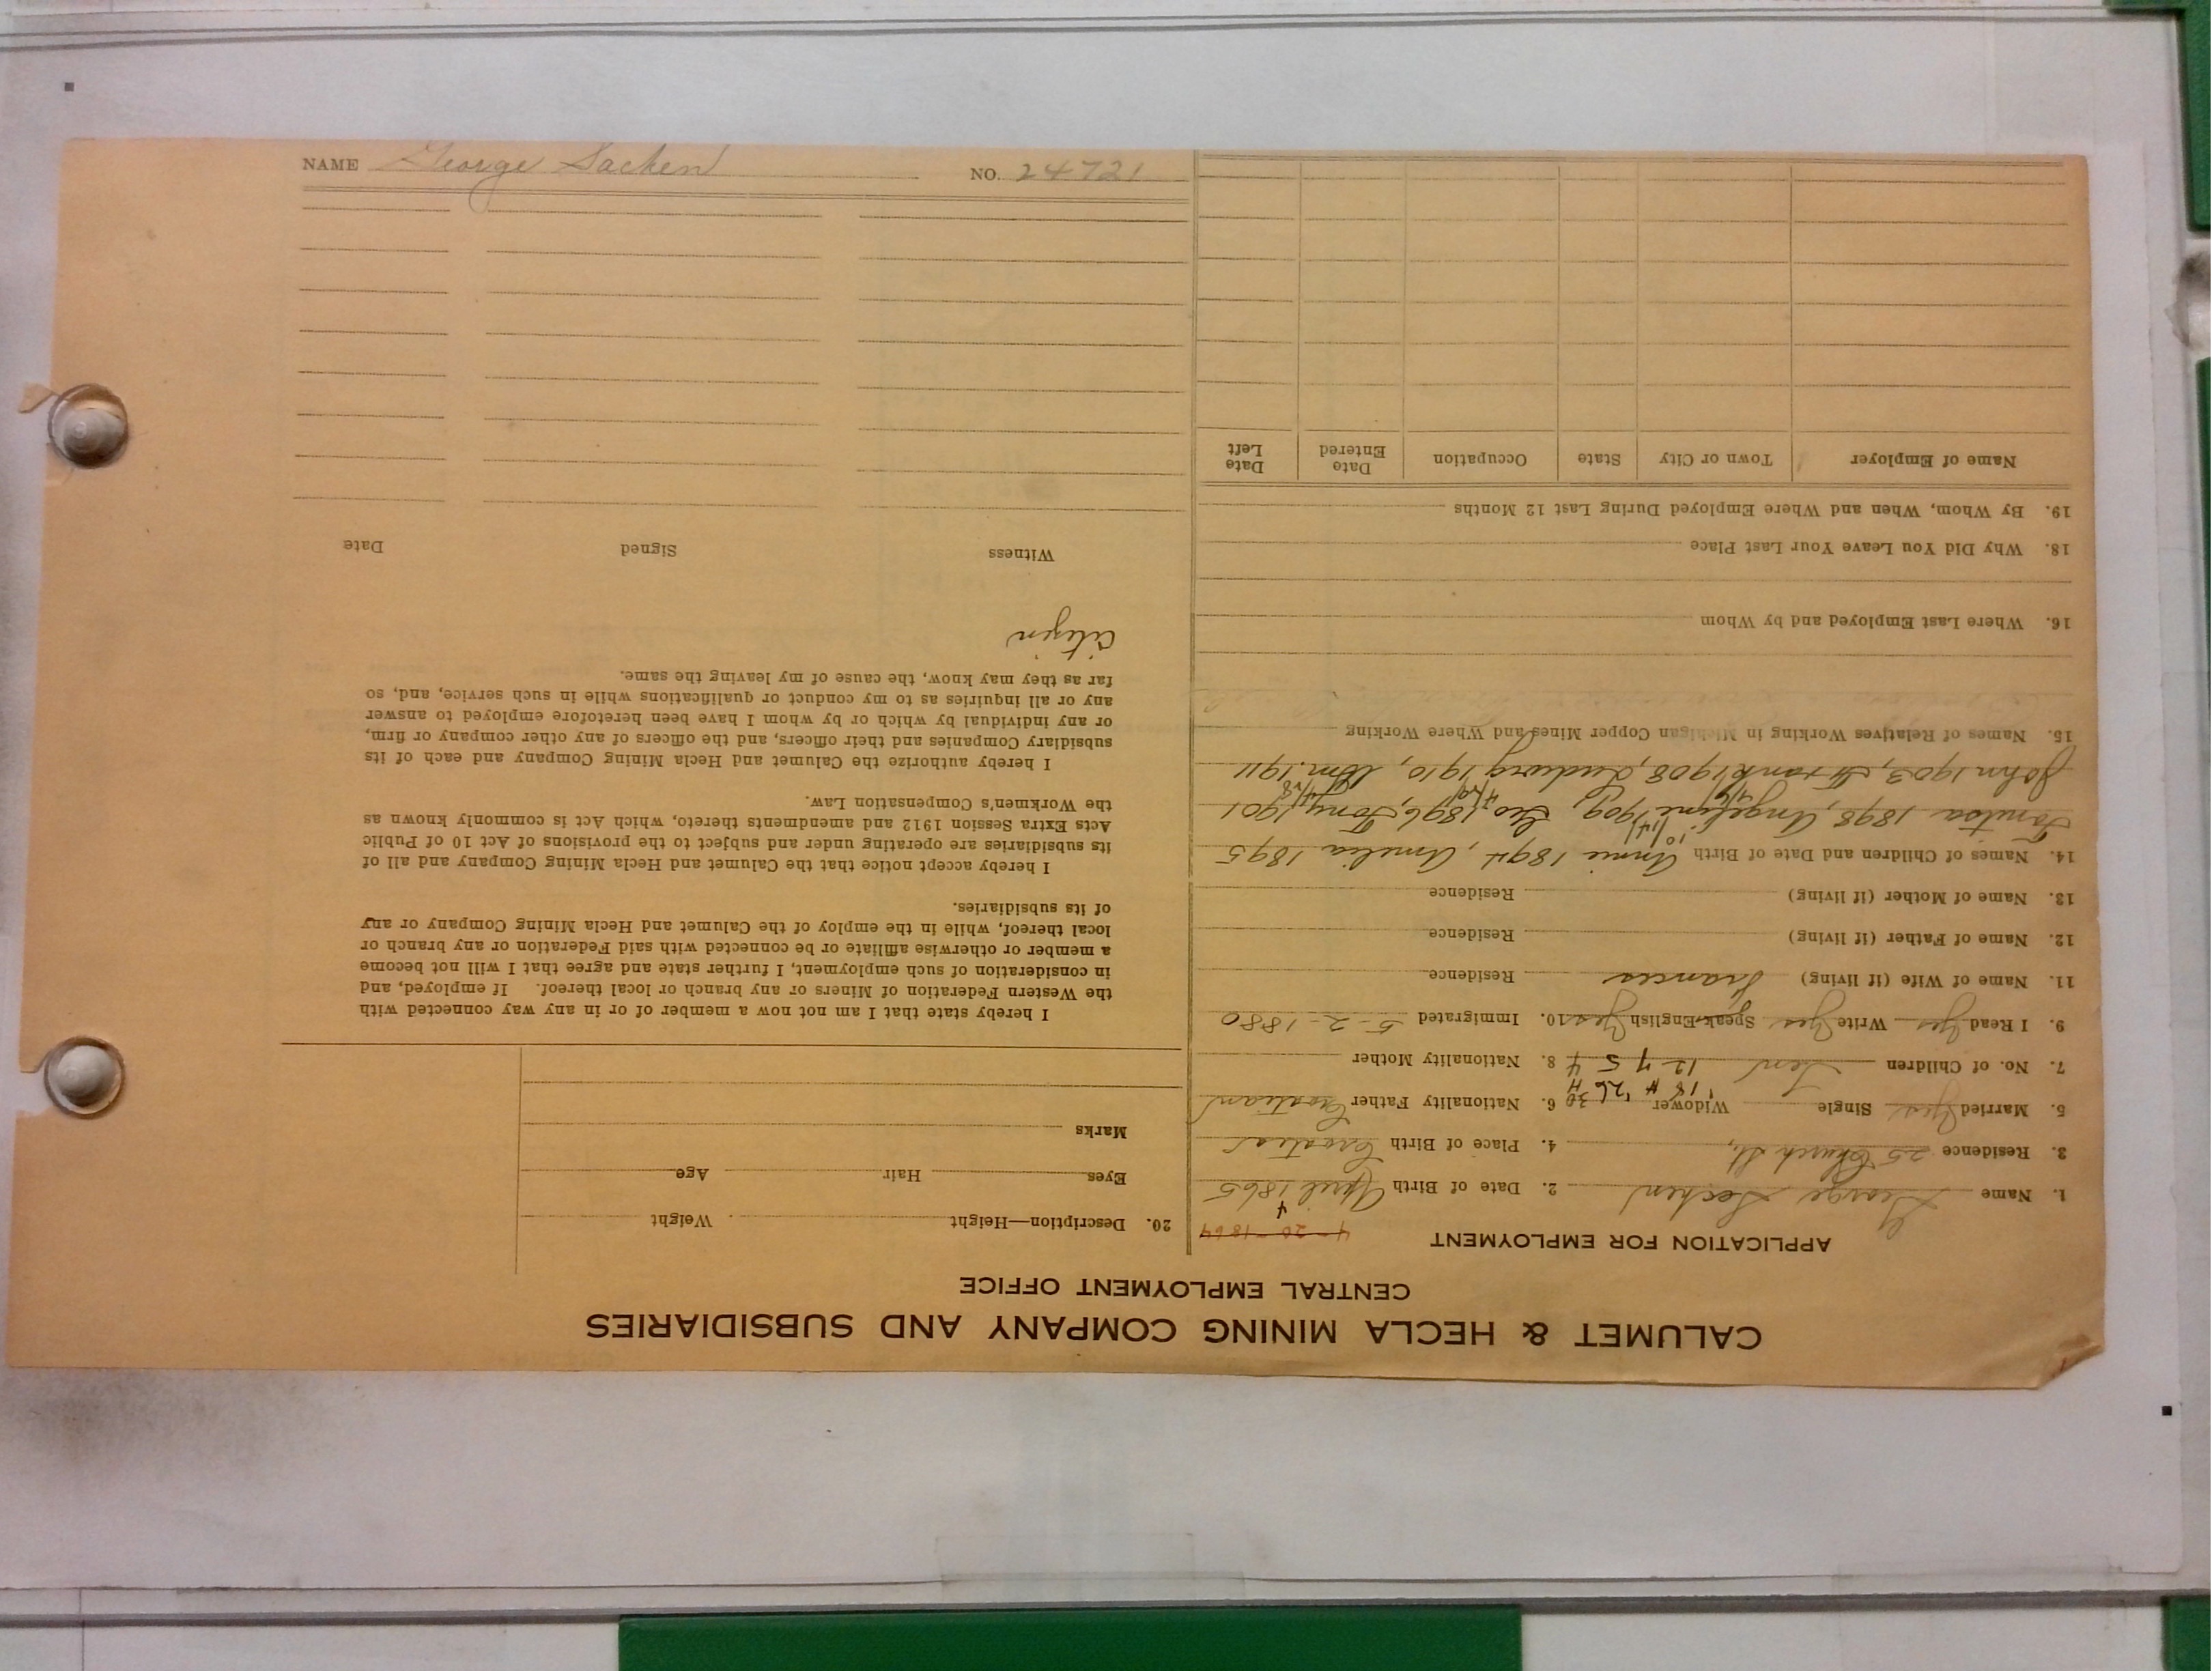 CALUMET & HECLA MINING COMPANY AND SUBSIDIARIES
CENTRAL EMPLOYMENT OFFICE
APPLICATION FOR EMPLOYMENT
4-20-1864
1. Name George Sachen 2. Date of Birth April 4 1865
3. Residence 25 Church St, 4. Place of Birth Croatia
5. Married Yes Single Widower 6. Nationality Father Croatian
'18 4 '26 30 4
7. No. of Children Ten 12 7 5 4 8. Nationality Mother
9. I Read Yes Write Yes Speak English Yes 10. Immigrated 5-2-1880
11. Name of Wife (if living) Frances Residence
12. Name of Father (if living) Residence
13. Name of Mother (if living) Residence
14. Names of Children and Date of Birth Annie 1894, Amelia 1895
10/14/
1898, Angeline 1909, Geo 1896, Tony 1901
John 1903, Frank 1908, Ludwig 1910, Wm. 1911
15. Names of Relatives Working in Michigan Copper Mines and Where Working
16. Where Last Employed and by Whom
18. Why Did You Leave Your Last Place
19. By Whom, When and Where Employed During Last 12 Months
Name of Employer Town or City State Occupation Date Entered Date Left
20. Description—Height Weight
Eyes Hair Age
Marks
I hereby state that I am not now a member of or in any way connected with
the Western Federation of Miners or any branch or local thereof. If employed, and
in consideration of such employment, I further state and agree that I will not become
a member or otherwise affiliate or be connected with said Federation or any branch or
local thereof, while in the employ of the Calumet and Hecla Mining Company or any
of its subsidiaries.
I hereby accept notice that the Calumet and Hecla Mining Company and all of
its subsidiaries are operating under and subject to the provisions of Act 10 of Public
Acts Extra Session 1912 and amendments thereto, which Act is commonly known as
the Workmen's Compensation Law.
I hereby authorize the Calumet and Hecla Mining Company and each of its
subsidiary Companies and their officers, and the officers of any other company or firm,
or any individual by which or by whom I have been heretofore employed to answer
any or all inquiries as to my conduct or qualifications while in such service, and, so
far as they may know, the cause of my leaving the same.
Citizen
Witness Signed Date
NAME George Sachen NO. 24721